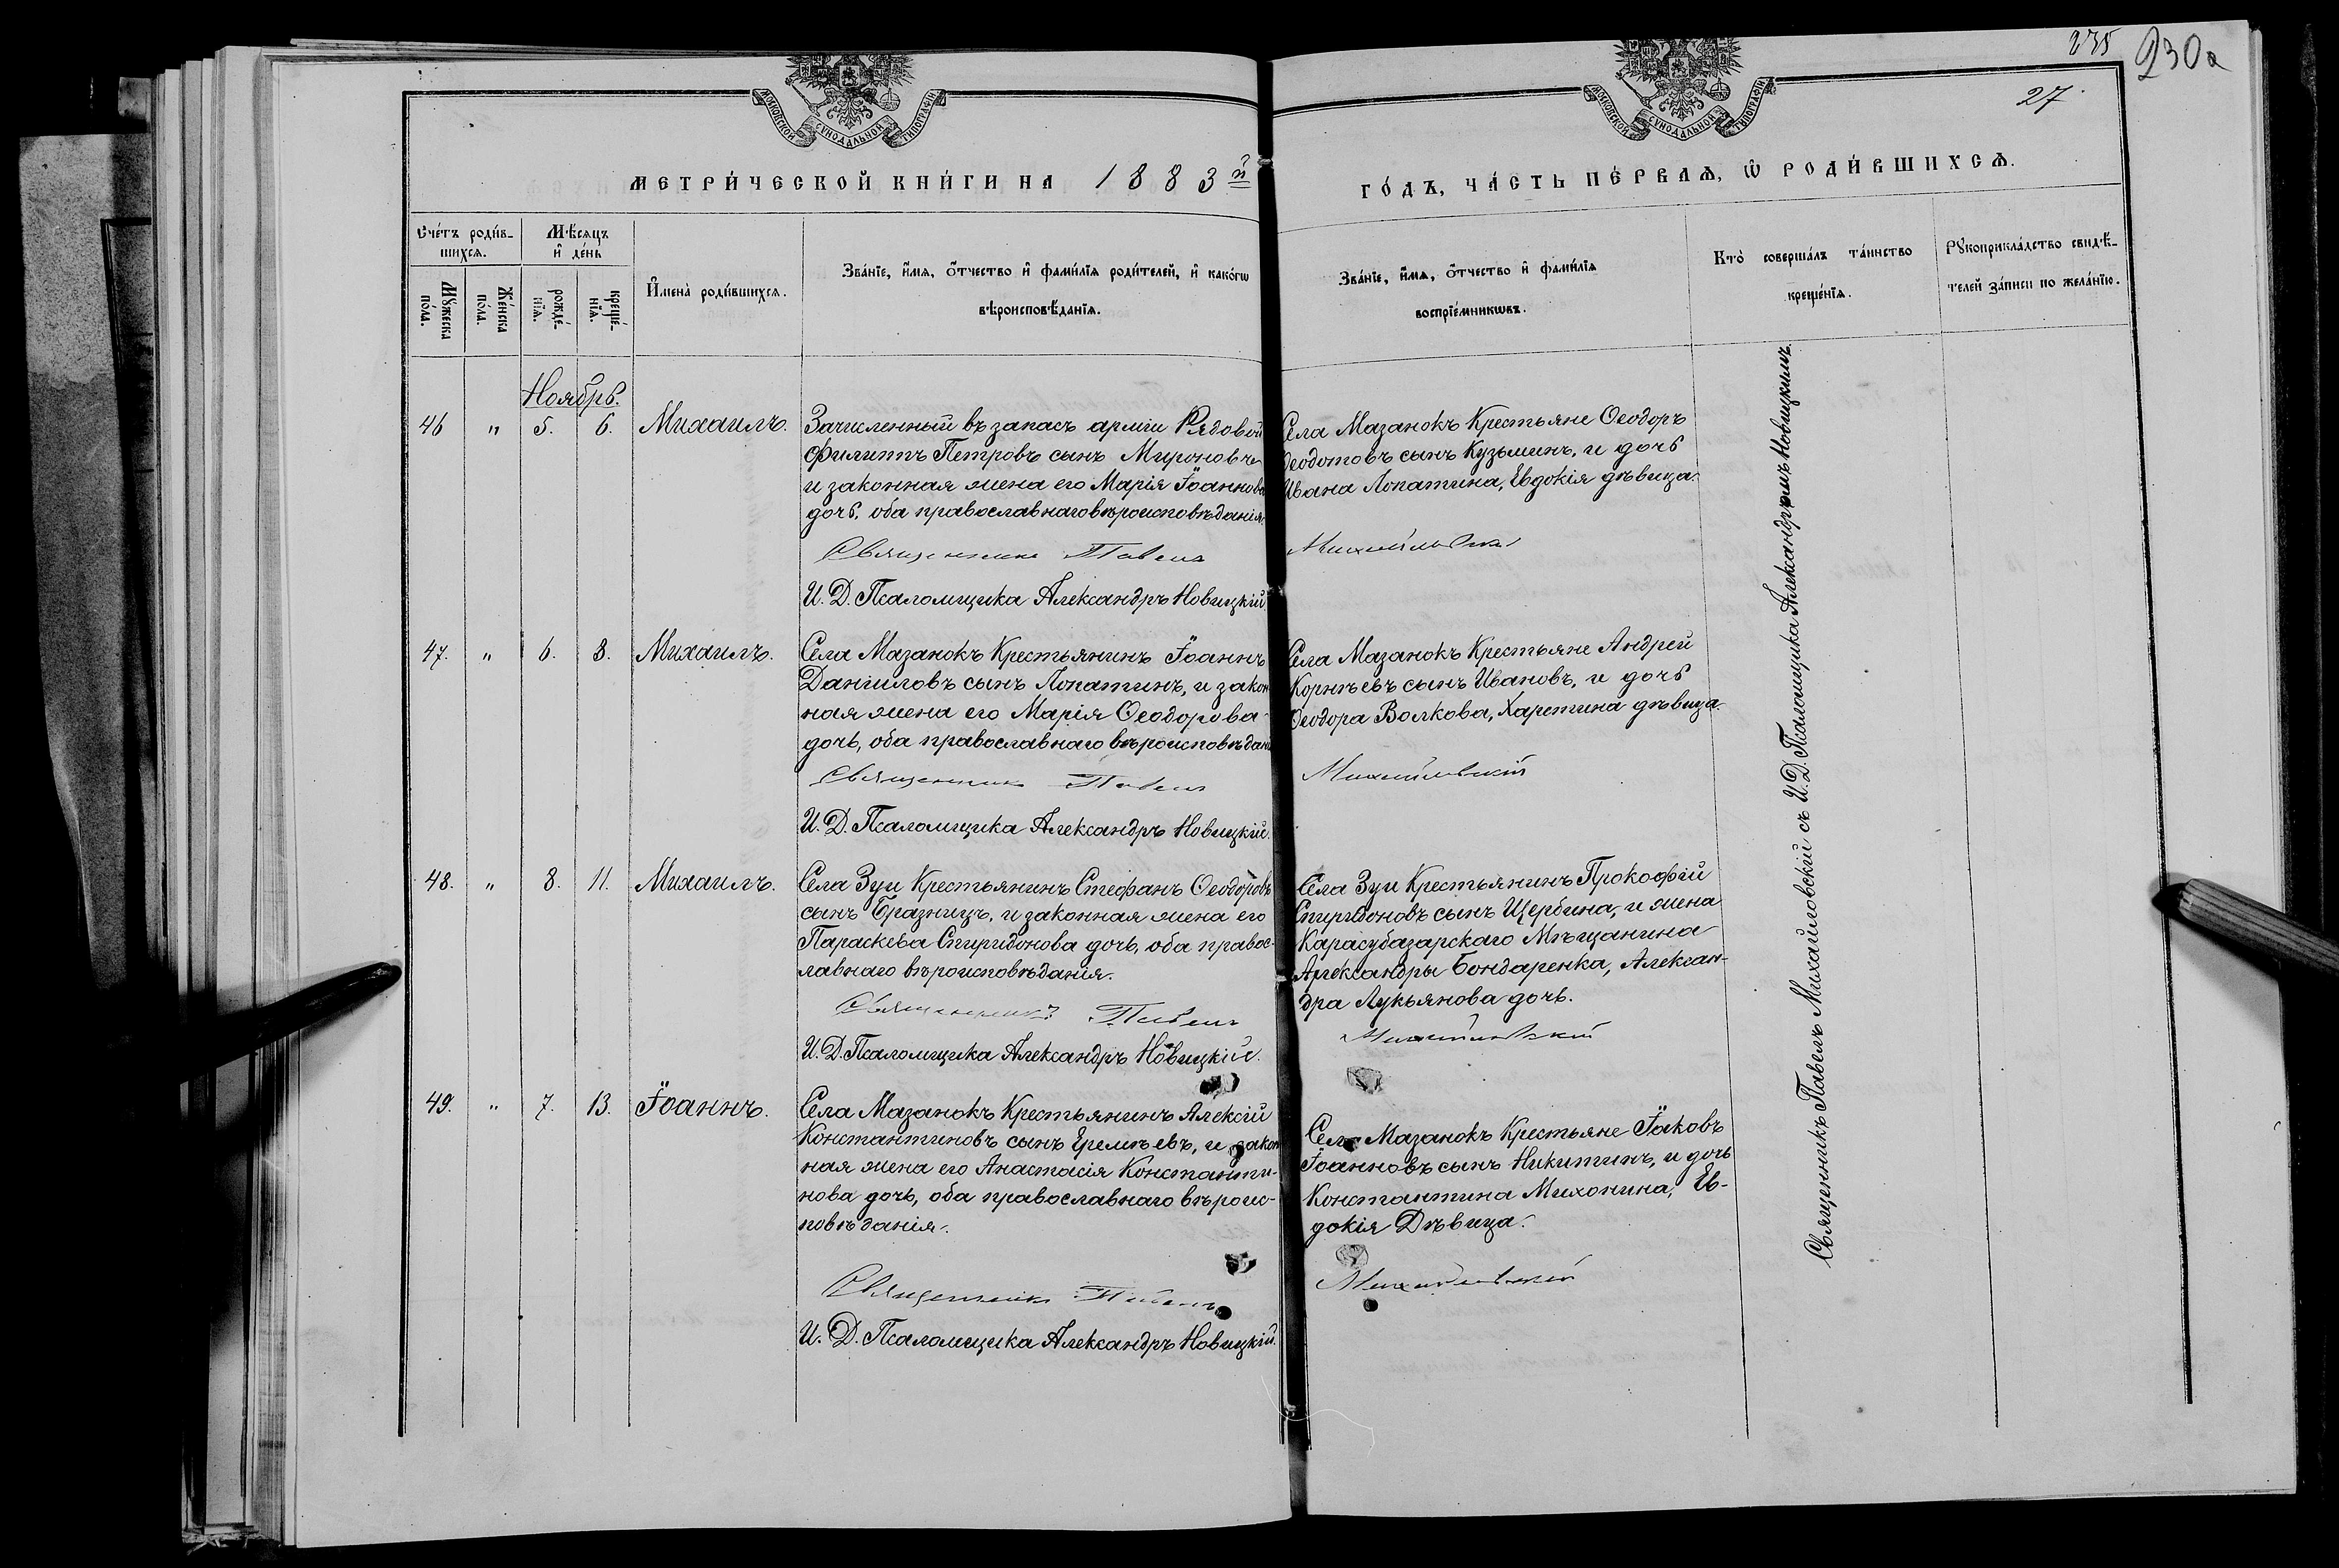 235 230а
27
МОСКОВСКОЙ СУНОДАЛЬНОЙ ТИПОГРАФІИ
МОСКОВСКОЙ СУНОДАЛЬНОЙ ТИПОГРАФІИ
МЕТРИ́ЧЕСКОЙ КНИ́ГИ НА 1883й
ГО́ДЪ, ЧА́СТЬ ПЕ́РВАѦ, Ѡ҆ РОДИ́ВШИХСѦ.
Сче́тъ роди́в-
шихсѧ.
Мꙋ́жеска по́ла.
Же́нска по́ла.
Мѣ́сѧцъ
и҆ де́нь
рожде́-нїѧ.
креще́-нїѧ.
И҆мена̀ роди́вшихсѧ.
Зва́нїе, и҆́мѧ, ѻ҆́тчество и҆ фами́лїѧ роди́телей, и҆ како́гѡ
вѣроисповѣ́данїѧ.
Зва́нїе, и҆́мѧ, ѻ҆́тчество и҆ фами́лїѧ
воспрїе́мникѡвъ.
Кто̀ соверша́лъ та́инство
креще́нїѧ.
Рꙋкоприкла́дство свидѣ́-
телей за́писи по жела́нїю.
Ноябрь.
46 " 5. 6. Михаилъ.
Зачисленный въ запасъ арміи Рядовой
Филиппъ Петровъ сынъ Мироновъ
и законная жена его Марія Іоаннова
дочь, оба православнаго вѣроисповѣданія.
Священникъ Павелъ
И. Д. Псаломщика Александръ Новицкій.
Села Мазанокъ Крестьяне Ѳеодоръ
Ѳеодотовъ сынъ Кузьминъ, и дочь
Ивана Лопатина, Евдокія дѣвица.
Михайловскій
47. " 6. 8. Михаилъ.
Села Мазанокъ Крестьянинъ Іоаннъ
Даніиловъ сынъ Лопатинъ, и закон
ная жена его Марія Ѳеодорова
дочь, оба православнаго вѣроисповѣдан
Священникъ Павелъ
И. Д. Псаломщика Александръ Новицкій.
Села Мазанокъ Крестьяне Андрей
Корнѣевъ сынъ Ивановъ, и дочь
Ѳеодора Волкова, Харетина дѣвица.
Михайловскій
48. " 8. 11. Михаилъ.
Села Зуи Крестьянинъ Стефанъ Ѳеодоровъ
сынъ Бразницъ, и законная жена его
Параскева Спиридонова дочь, оба правос-
лавнаго вѣроисповѣданія.
Священникъ Павелъ
И. Д. Псаломщика Александръ Новицкій.
Села Зуи Крестьянинъ Прокофій
Спиридоновъ сынъ Щербина, и жена
Карасубазарскаго Мѣщанина
Александры Бондаренка, Алексан-
дра Лукьянова дочь.
Михайловскій
49. " 7. 13. Іоаннъ.
Села Мазанокъ Крестьянинъ Алексій
Константиновъ сынъ Еремѣевъ, и закон
ная жена его Анастасія Константи-
нова дочь, оба православнаго вѣроис-
повѣданія.
Священникъ Павелъ
И. Д. Псаломщика Александръ Новицкій.
Села Мазанокъ Крестьяне Іаковъ
Іоанновъ сынъ Никитинъ, и дочь
Константина Михонина, Ев-
докія Дѣвица.
Михайловскій
Священникъ Павелъ Михайловскій съ И. Д. Псаломщика Александромъ Новицкимъ.